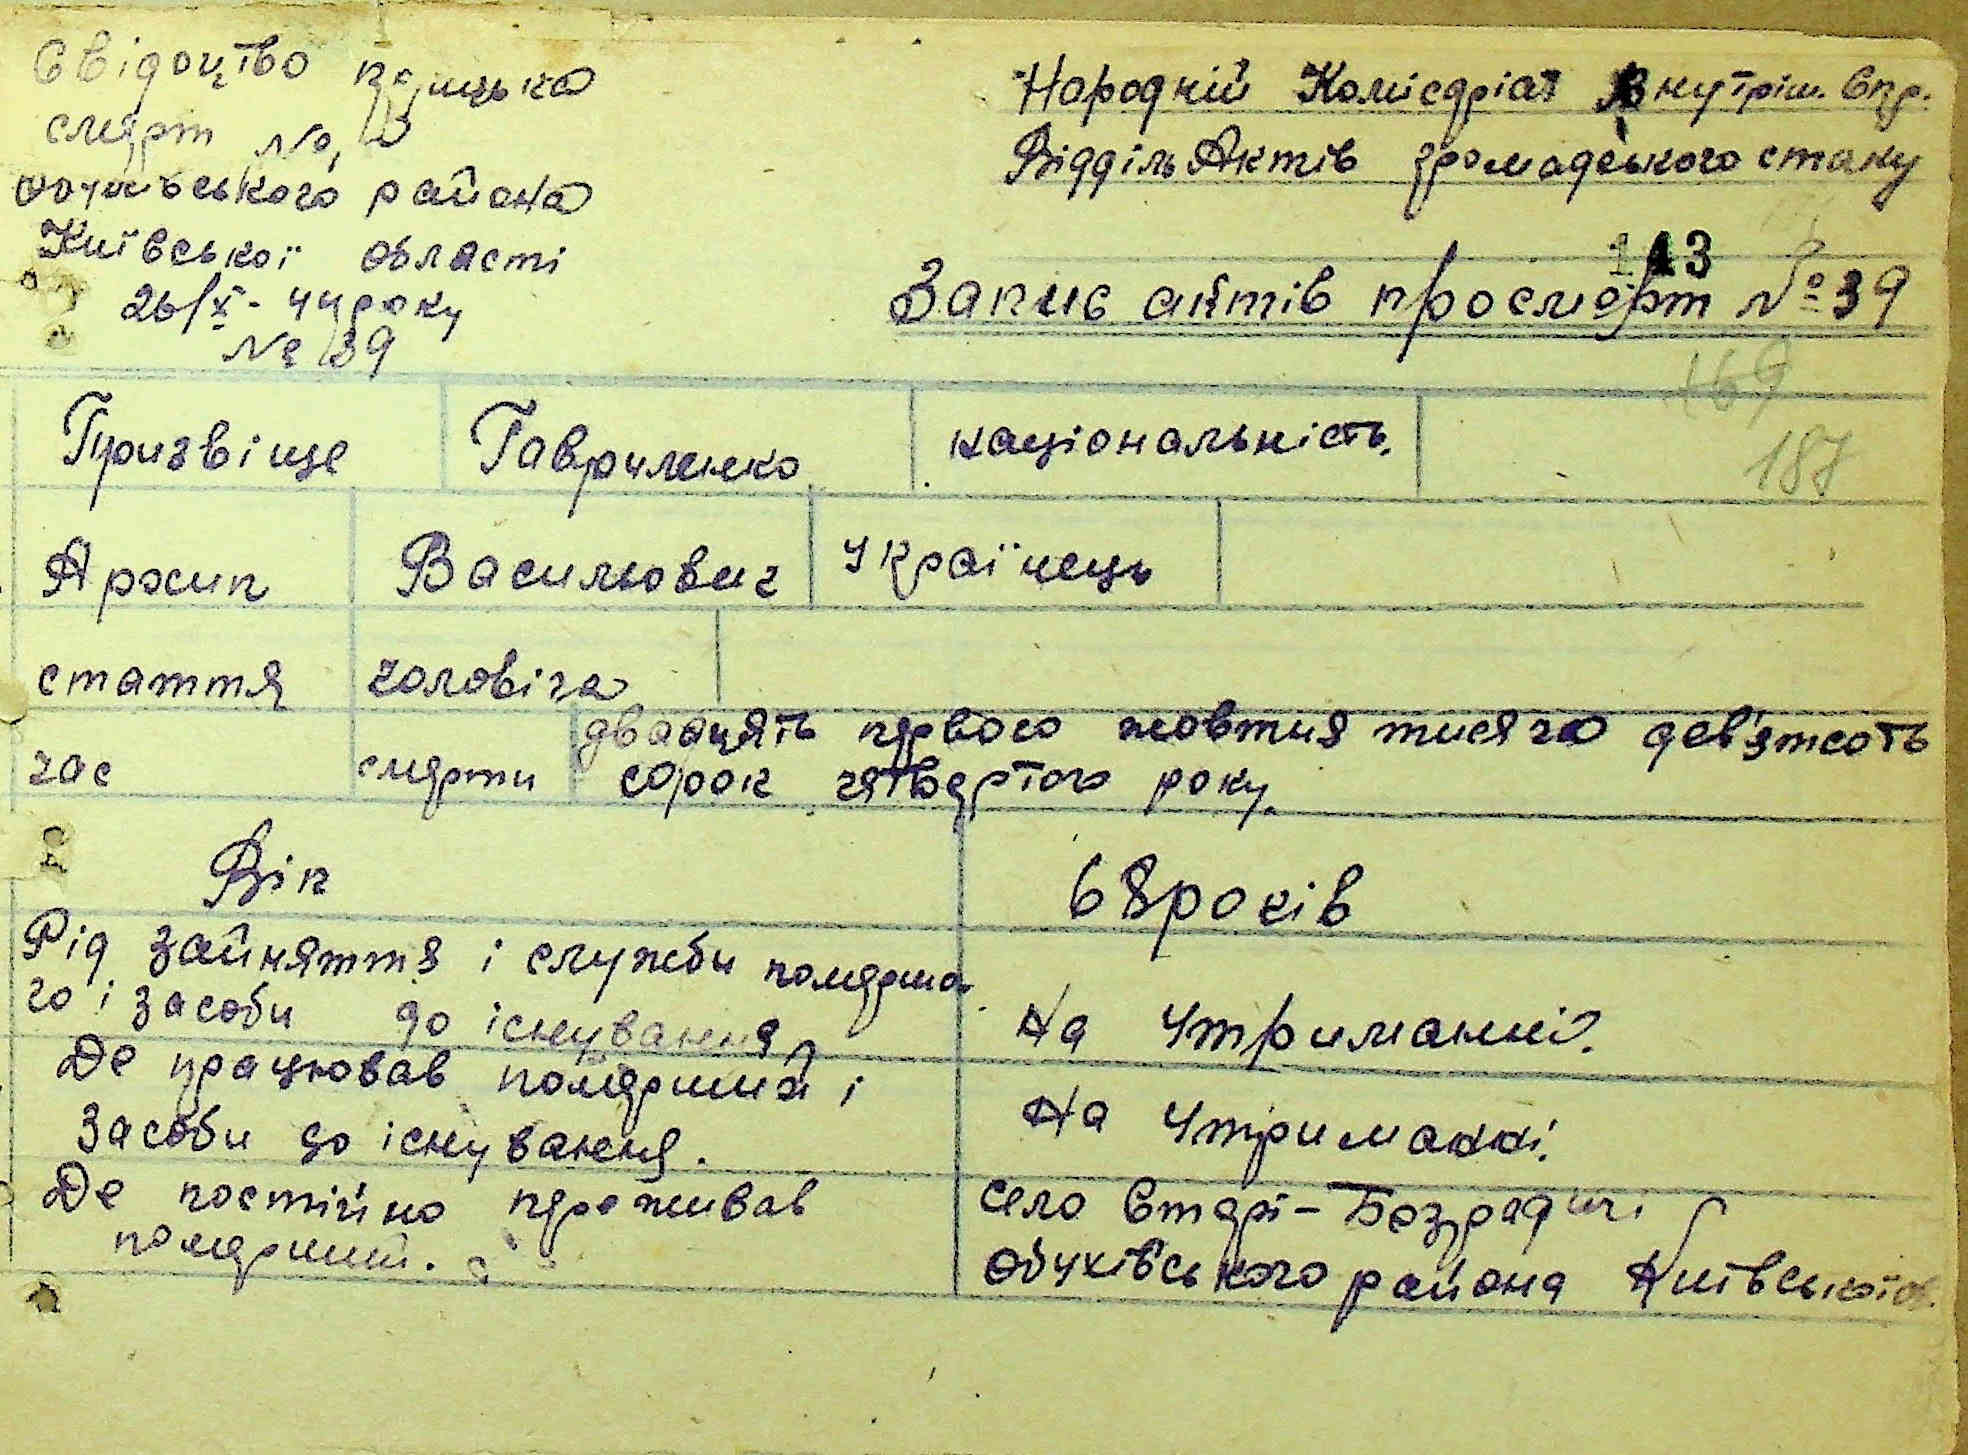 Свідоцтво
смерт №
района
Київської області
26/X - 44 року
№ 39
Народній Комісаріат Внутріш. Спр.
Відділь Актів громадського стану
143
Запис актів про смерт № 39
169
187
Призвіще Гавриленко національність.
Архип Васильович Українець
стаття чоловіча
час смерти двадцять первого жовтня тисячо дев'ятсоть
сорок четвертого року.
Вік 68 років
Рід зайняття і служби померша
го і засоби до існування На утриманні.
Де працював померший і
засоби до існування. На утриманні.
Де постійно преживав
померший.
село Старі-Безрадичі
Обухівського района Київської об.